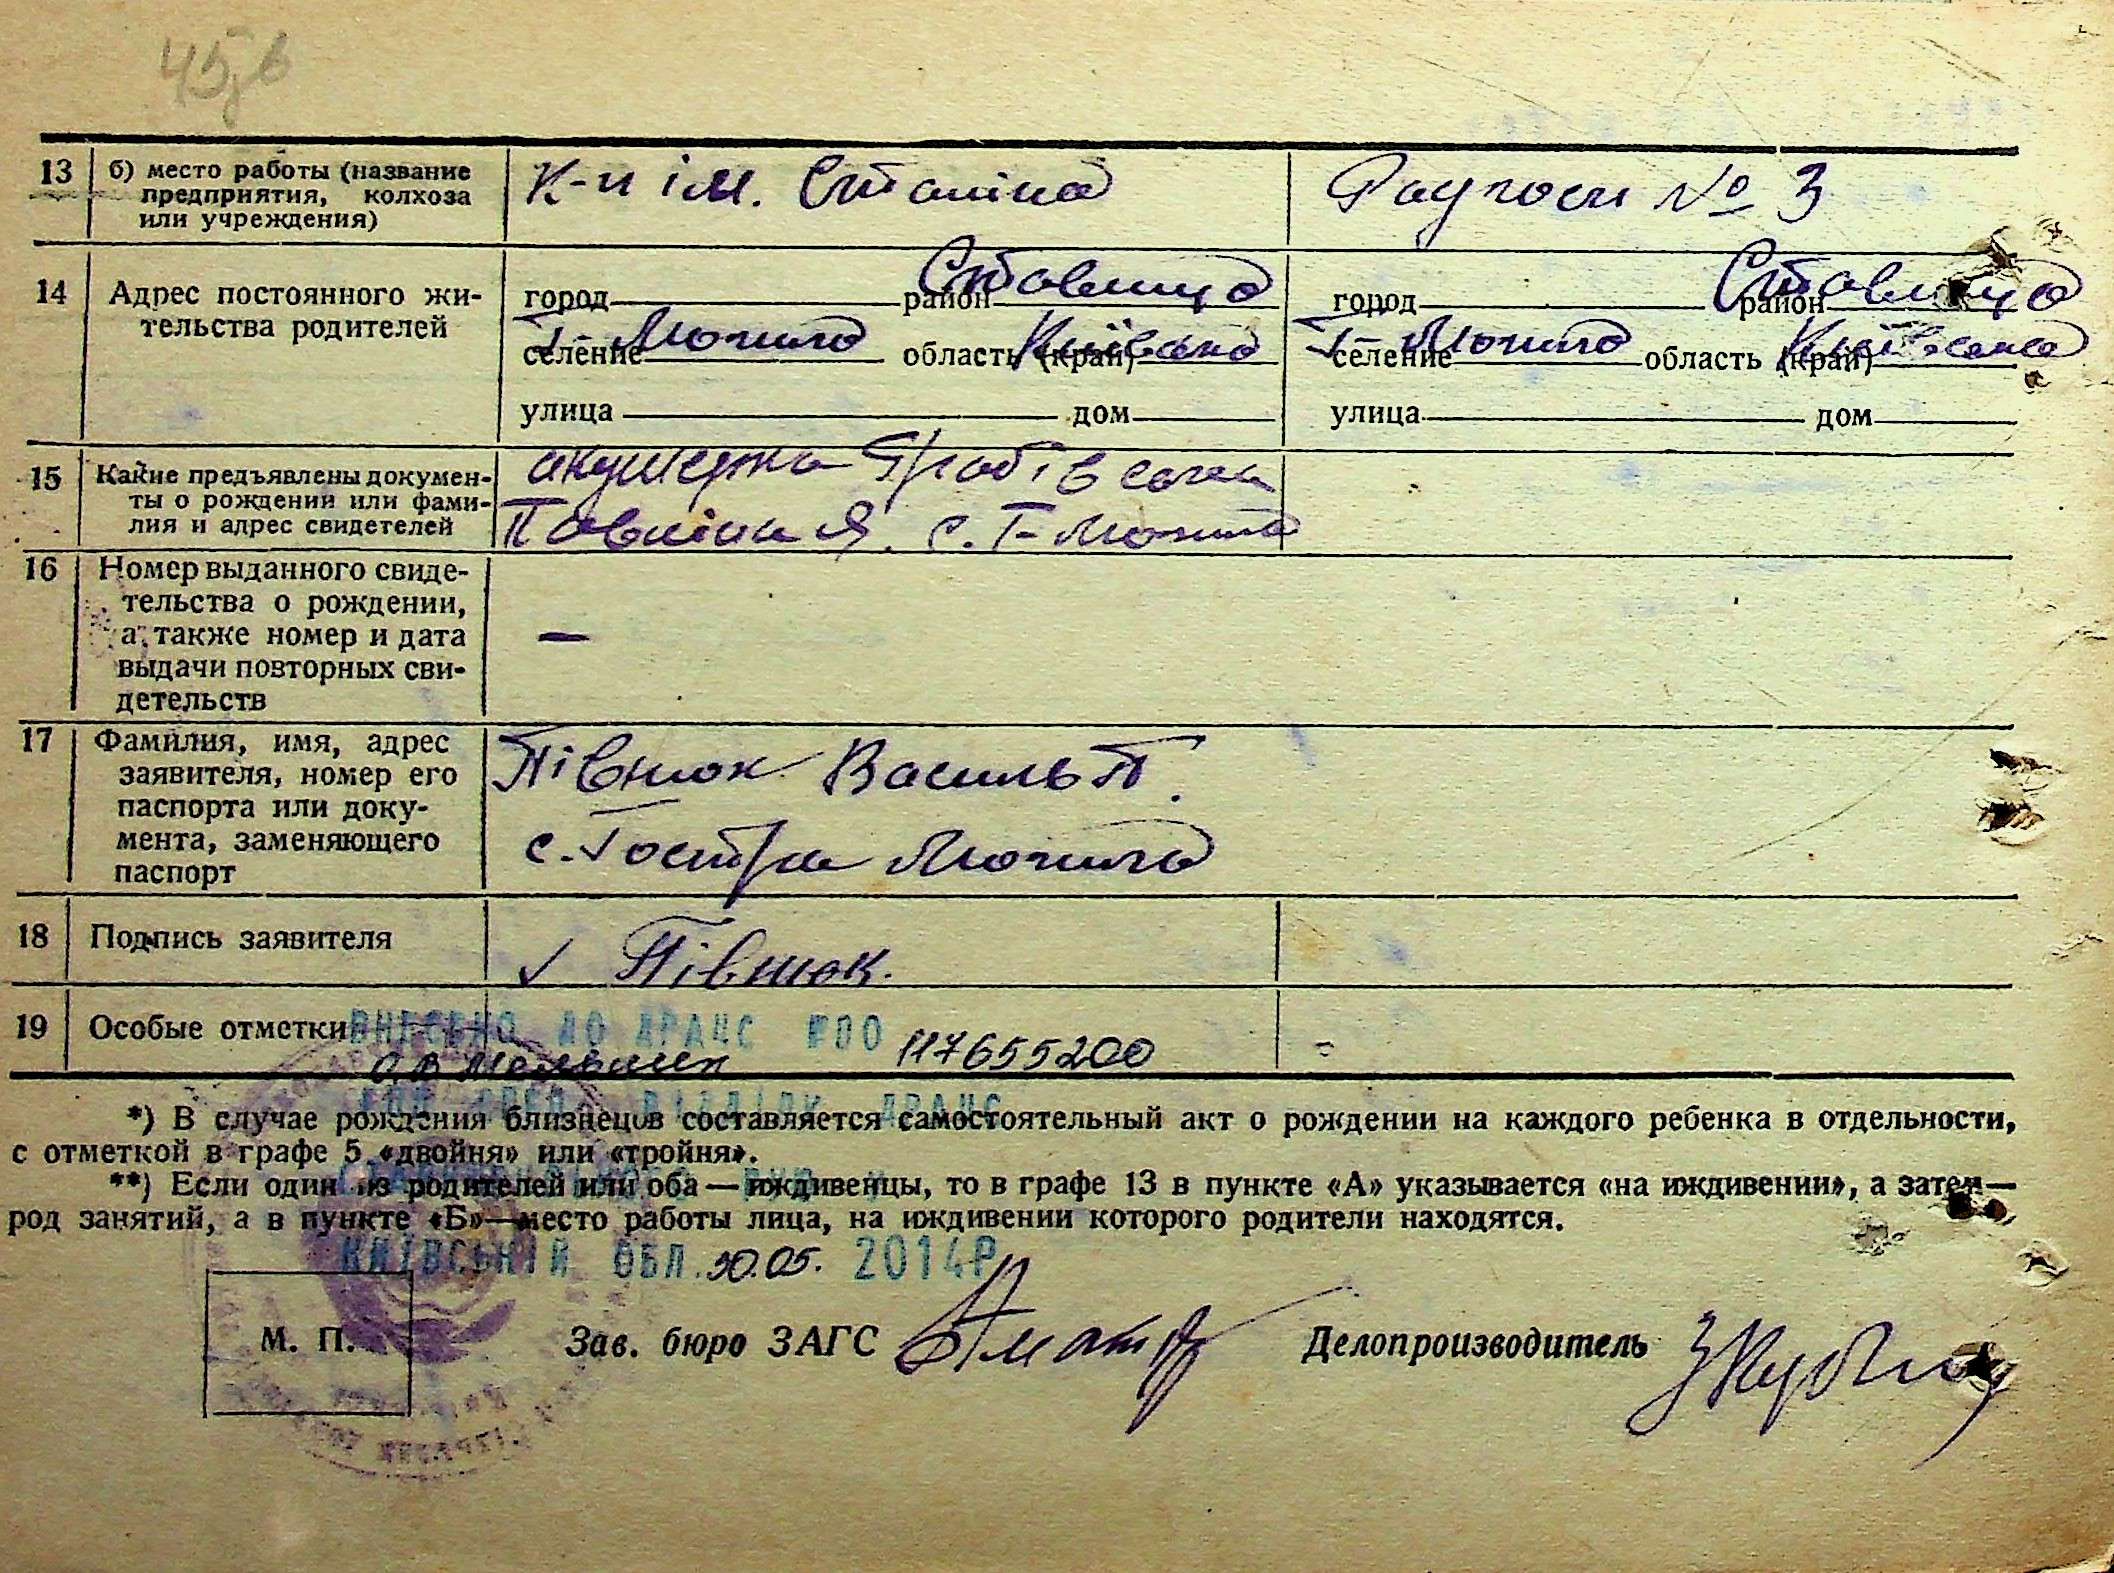 45,в
13 б) место работы (название предприятия, колхоза или учреждения)
К-п ім. Сталіна
Радгосп № 3
14 Адрес постоянного жи-
тельства родителей
город район Ставища
селение Г-Могила область (край) Київська
улица дом
город район Ставища
селение Г-Могила область (край) Київська
улица дом
15 Какие предъявлены докумен-
ты о рождении или фами-
лия и адрес свидетелей
акушерка
с. Г-Могила
16 Номер выданного свиде-
тельства о рождении,
а также номер и дата
выдачи повторных сви-
детельств
—
17 Фамилия, имя, адрес
заявителя, номер его
паспорта или доку-
мента, заменяющего
паспорт
Півнюк Василь П.
с. Гостра Могила
18 Подпись заявителя
✓ Півнюк.
19 Особые отметки
ВНЕСЕНО ДО ДРАЦС №00 117655200
ВІДДІЛОК ДРАЦС
*) В случае рождения близнецов составляется самостоятельный акт о рождении на каждого ребенка в отдельности,
с отметкой в графе 5 «двойня» или «тройня».
**) Если один из родителей или оба — иждивенцы, то в графе 13 в пункте «А» указывается «на иждивении», а затем—
род занятий, а в пункте «Б»—место работы лица, на иждивении которого родители находятся.
КИЇВСЬКІЙ ОБЛ. 30.05. 2014Р
М. П.
Зав. бюро ЗАГС
Делопроизводитель